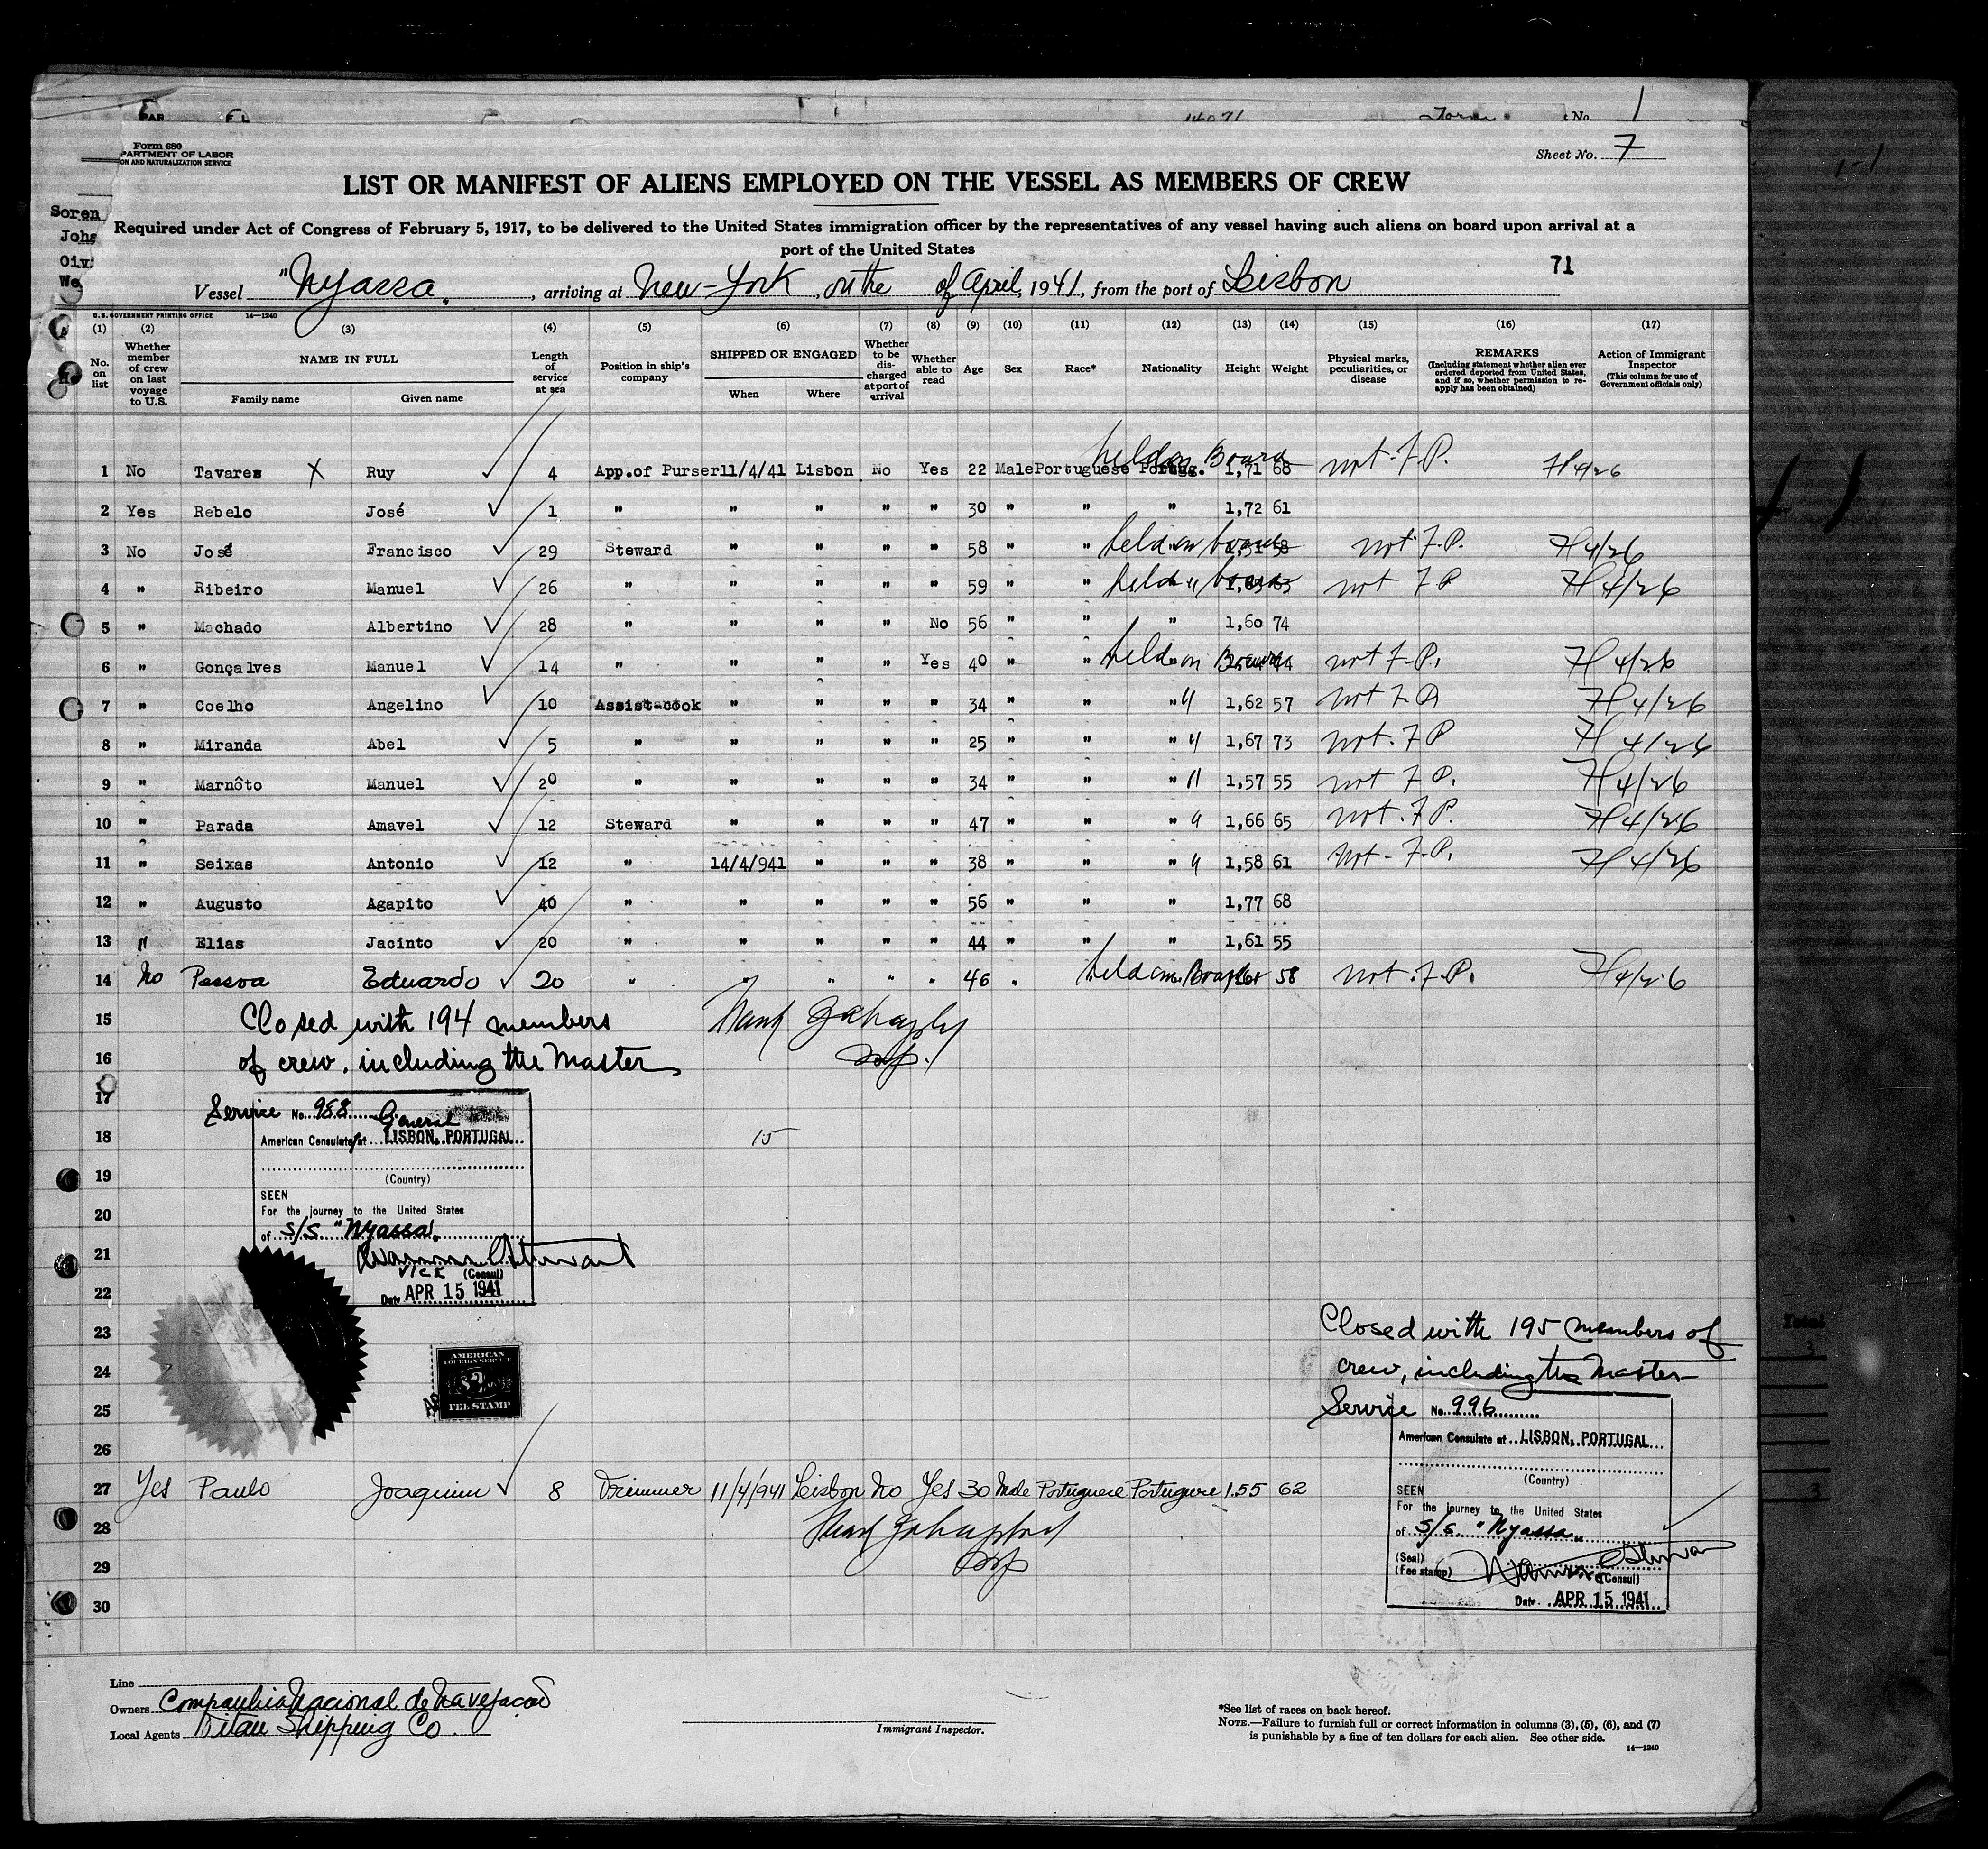 PAR
14071
No. 1
Form 680
PARTMENT OF LABOR
ON AND NATURALIZATION SERVICE
Sheet No. 7
LIST OR MANIFEST OF ALIENS EMPLOYED ON THE VESSEL AS MEMBERS OF CREW
Soren
Required under Act of Congress of February 5, 1917, to be delivered to the United States immigration officer by the representatives of any vessel having such aliens on board upon arrival at a
port of the United States
71
Vessel "Nyassa", arriving at New-York, on the of April, 1941, from the port of Lisbon
U.S. GOVERNMENT PRINTING OFFICE 14—1240
(1) (2) (3) (4) (5) (6) (7) (8) (9) (10) (11) (12) (13) (14) (15) (16) (17)
No. on list Whether member of crew on last voyage to U.S. NAME IN FULL Family name Given name Length of service at sea Position in ship's company SHIPPED OR ENGAGED When Where Whether to be discharged at port of arrival Whether able to read Age Sex Race* Nationality Height Weight Physical marks, peculiarities, or disease REMARKS (Including statement whether alien ever ordered deported from United States, and if so, whether permission to reapply has been obtained) Action of Immigrant Inspector (This column for use of Government officials only)
1 No Tavares X Ruy 4 App.of Purser 11/4/41 Lisbon No Yes 22 Male Portuguese Portug. held on Board 1,71 68 not F.P. H 4/26
2 Yes Rebelo José 1 " " " " " 30 " " " 1,72 61
3 No José Francisco 29 Steward " " " " 58 " " held on board 58 not F.P. H 4/26
4 " Ribeiro Manuel 26 " " " " " 59 " " held " board 63 not F P H 4/26
5 " Machado Albertino 28 " " " " No 56 " " " 1,60 74
6 " Gonçalves Manuel 14 " " " " Yes 40 " " held on Board not F.P. H 4/26
7 " Coelho Angelino 10 Assist-cook " " " " 34 " " " " 1,62 57 not F P H 4/26
8 " Miranda Abel 5 " " " " " 25 " " " " 1,67 73 not. F P H 4/26
9 " Marnôto Manuel 20 " " " " " 34 " " " " 1,57 55 not F P. H 4/26
10 " Parada Amavel 12 Steward " " " " 47 " " " " 1,66 65 not. F P. H 4/26
11 " Seixas Antonio 12 " 14/4/941 " " " 38 " " " " 1,58 61 Not - F.P. H 4/26
12 " Augusto Agapito 40 " " " " " 56 " " " 1,77 68
13 " Elias Jacinto 20 " " " " " 44 " " " 1,61 55
14 No Pessoa Eduardo 20 " " " " " 46 " held on Board 58 not. F.P. H 4/26
15 Closed with 194 members
16 of crew, including the Master
17 Service No. 988 General
18 American Consulate at LISBON, PORTUGAL 15
19 (Country)
SEEN
20 For the journey to the United States
of S/S. "Nyassa"
21
VICE (Consul)
22 Date APR 15 1941
23 Closed with 195 members of
24 crew, including the Master
AMERICAN
FOREIGN SERVICE
FEE STAMP
25 Service No. 996
American Consulate at LISBON, PORTUGAL
26
(Country)
27 Yes Paulo Joaquim 8 Trimmer 11/4/941 Lisbon No Yes 30 Male Portuguese Portuguese 1.55 62
SEEN
For the journey to the United States
28
of S/s. "Nyassa"
29
(Seal)
(Fee stamp) (Consul)
30
Date APR 15 1941
Total
3
3
Line
Owners Companhia Nacional de Navegação
Local Agents Shipping Co.
Immigrant Inspector.
*See list of races on back hereof.
NOTE.—Failure to furnish full or correct information in columns (3), (5), (6), and (7)
is punishable by a fine of ten dollars for each alien. See other side.
14—1240